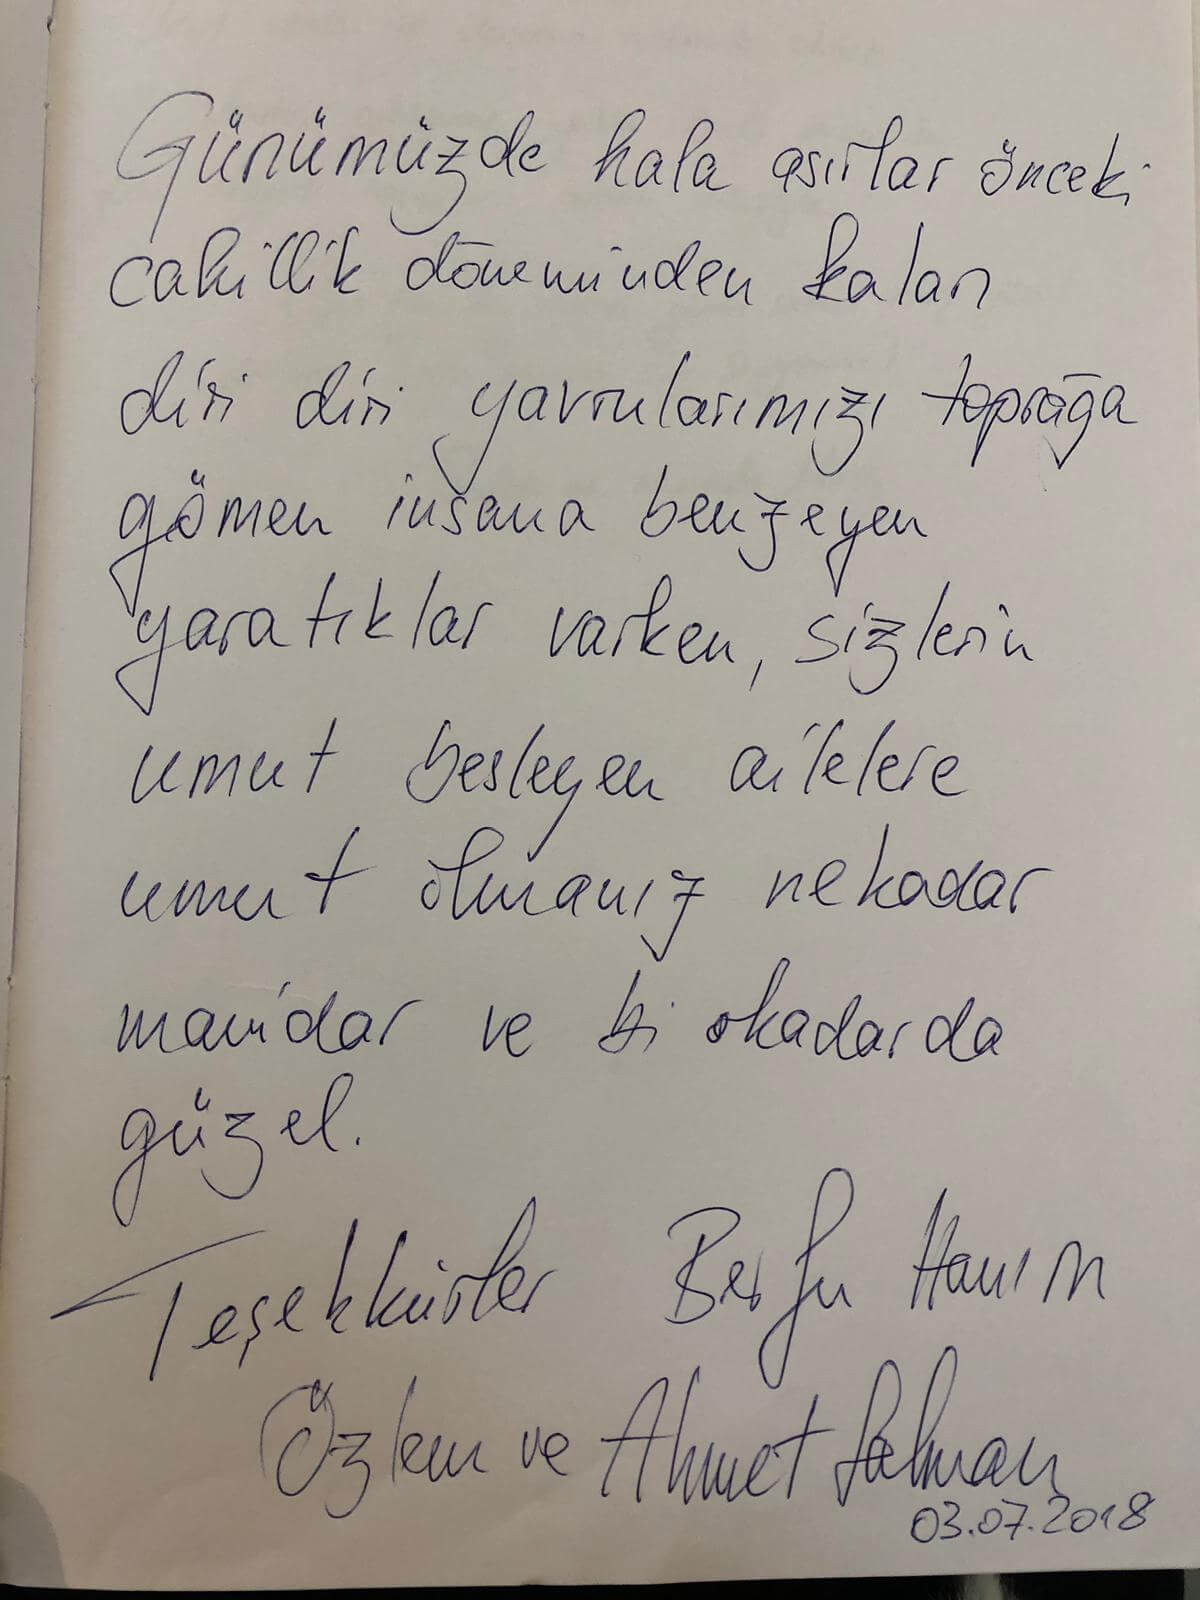 Günümüzde hala asırlar önceki
cahillik döneminden kalan
diri diri yavrularımızı toprağa
gömen insana benzeyen
yaratıklar varken, sizlerin
umut besleyen ailelere
umut olmanız nekadar
manidar ve bi okadarda
güzel.
Teşekkürler Berfu Hanım
Özlem ve Ahmet Salman
03.07.2018